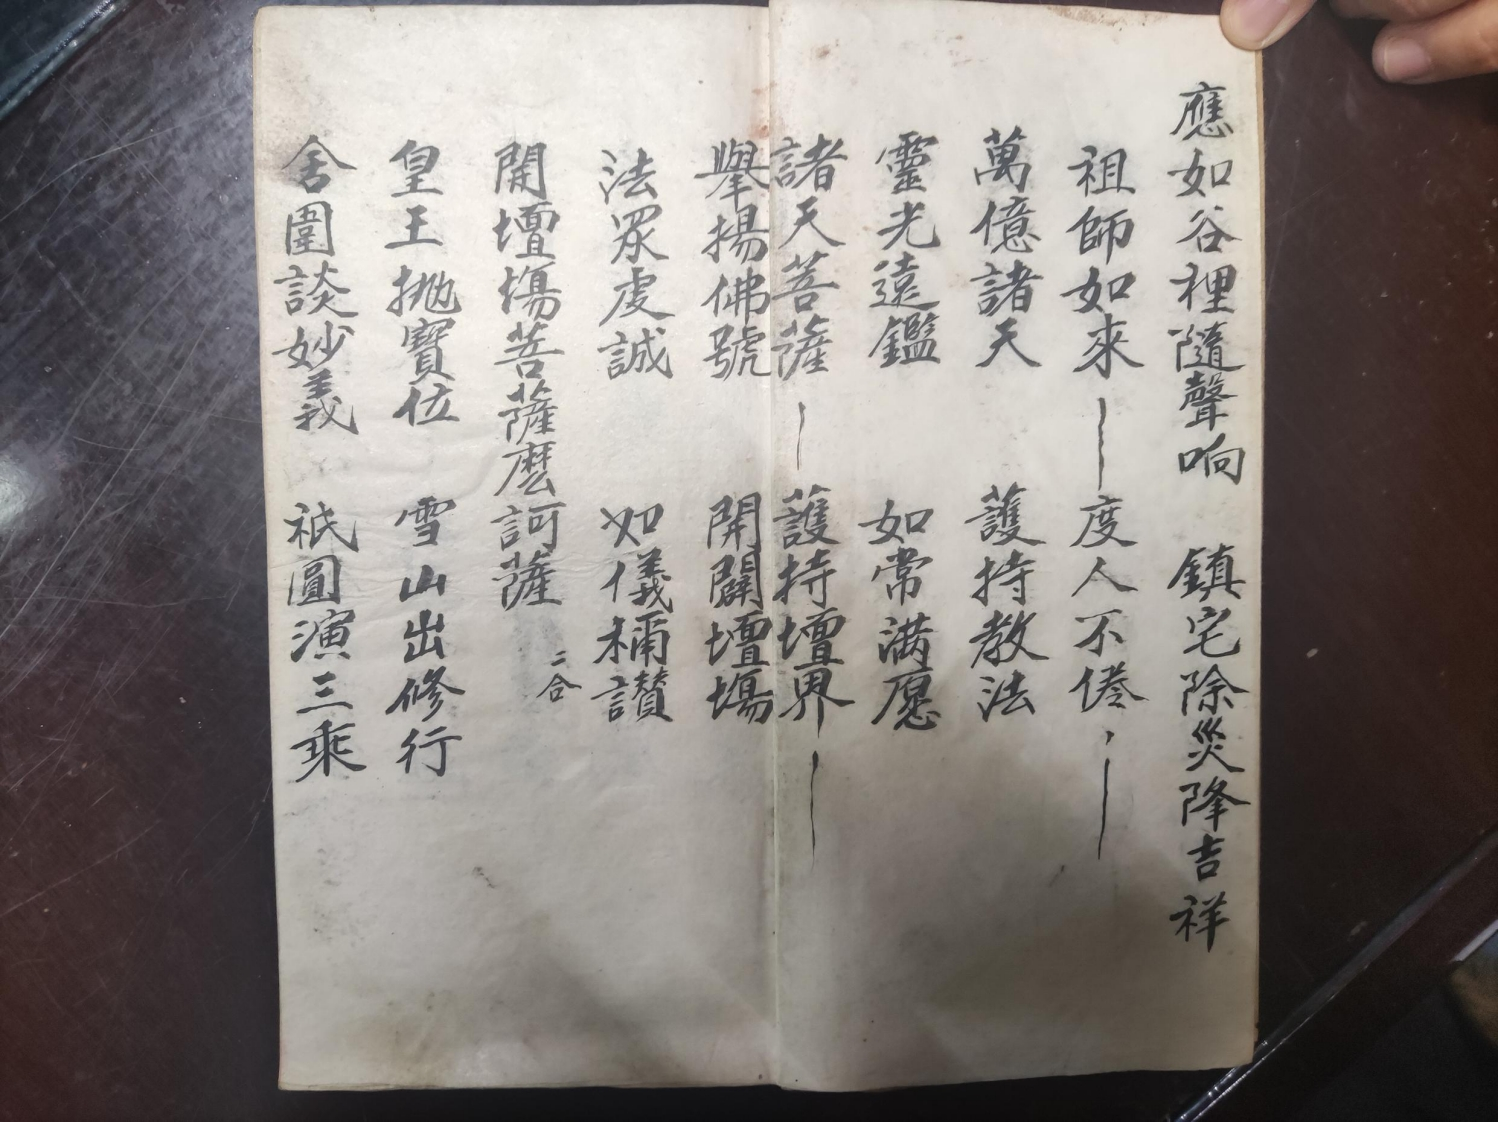 應如谷裡隨聲响　鎮宅除災降吉祥
祖師如來｜度人不倦、｜
萬億諸天　護持教法
靈光遠鑑　如常满愿
諸天菩薩｜護持壇界｜
舉揚佛號　開闢壇塲
法眾虔誠　如儀稱讃
開壇塲菩薩麽訶薩　二合
皇王拋寶位　雪山出修行
舍圍談妙義　祇圓演三乘